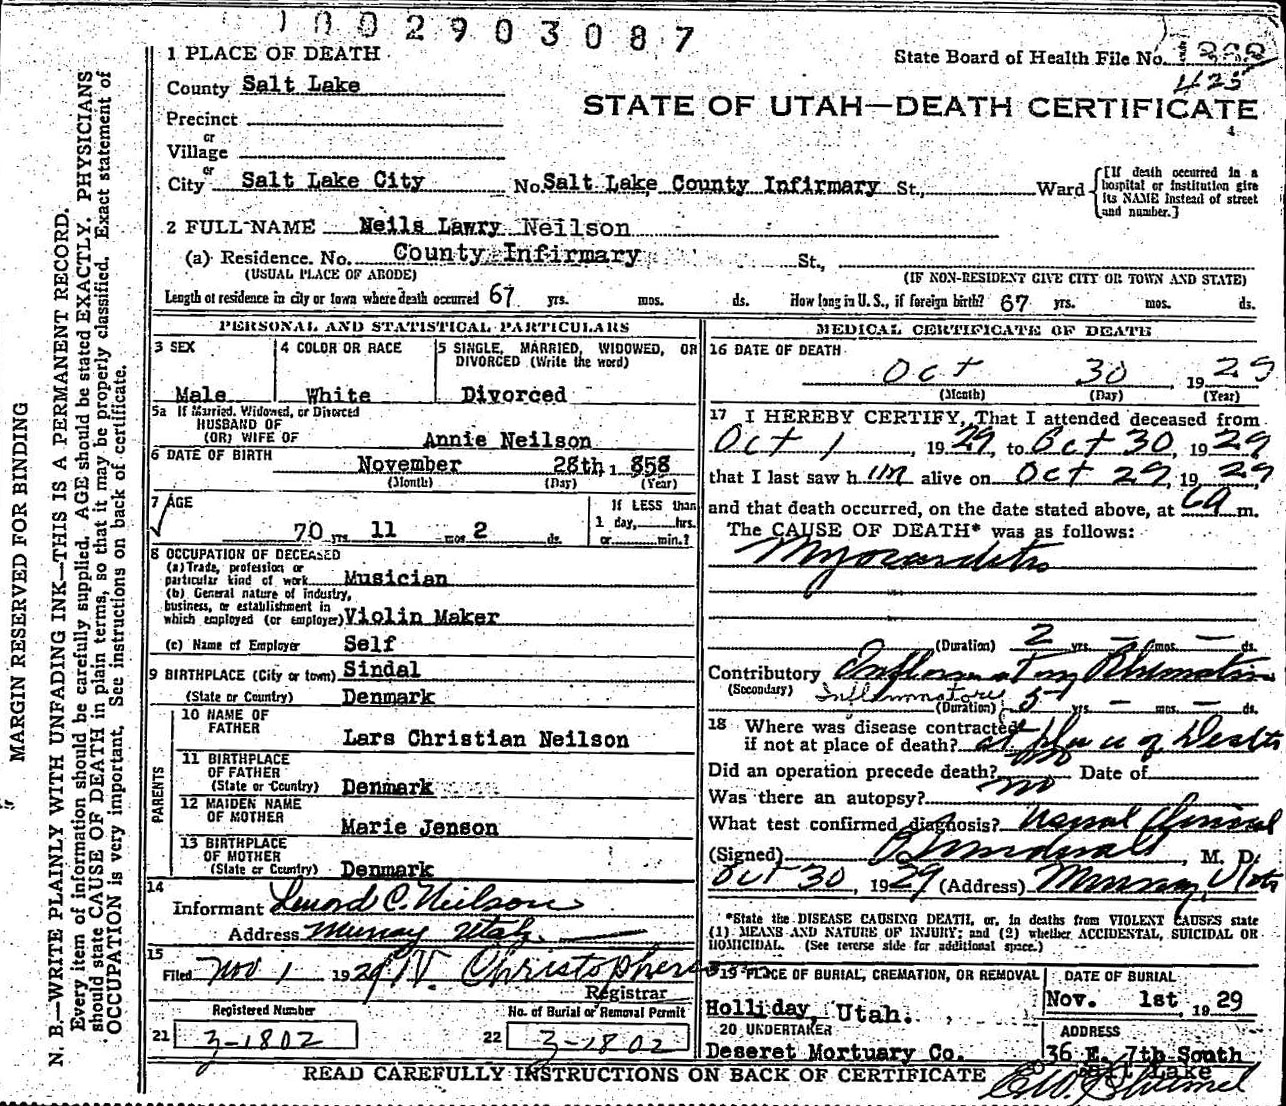 1002903087
1 PLACE OF DEATH
State Board of Health File No.
425
County Salt Lake
STATE OF UTAH—DEATH CERTIFICATE
Precinct
or
Village
or
City Salt Lake City No. Salt Lake County Infirmary St., Ward
[If death occurred in a hospital or institution give its NAME instead of street and number.]
2 FULL NAME Neils Lawry Neilson
(a) Residence. No. County Infirmary St.,
(USUAL PLACE OF ABODE) (IF NON-RESIDENT GIVE CITY OR TOWN AND STATE)
Length of residence in city or town where death occurred 67 yrs. mos. ds. How long in U. S., if foreign birth? 67 yrs. mos. ds.
PERSONAL AND STATISTICAL PARTICULARS
3 SEX 4 COLOR OR RACE 5 SINGLE, MARRIED, WIDOWED, OR
DIVORCED (Write the word)
Male White Divorced
5a If Married, Widowed, or Divorced
HUSBAND OF
(OR) WIFE OF Annie Neilson
6 DATE OF BIRTH November 28th 1 858
(Month) (Day) (Year)
7 AGE If LESS than
1 day, hrs.
70 yrs. 11 mos 2 ds. or min.?
8 OCCUPATION OF DECEASED
(a) Trade, profession or
particular kind of work Musician
(b) General nature of industry,
business, or establishment in
which employed (or employer) Violin Maker
(c) Name of Employer Self
9 BIRTHPLACE (City or town) Sindal
(State or Country) Denmark
PARENTS
10 NAME OF
FATHER Lars Christian Neilson
11 BIRTHPLACE
OF FATHER
(State or Country) Denmark
12 MAIDEN NAME
OF MOTHER Marie Jenson
13 BIRTHPLACE
OF MOTHER
(State or Country) Denmark
14
Informant C. Neilson
Address Murray Utah
15
Filed Nov 1 1929 Christopherson
Registrar
Registered Number No. of Burial or Removal Permit
21 3-1802 22 3-1802
MEDICAL CERTIFICATE OF DEATH
16 DATE OF DEATH
Oct 30, 1929
(Month) (Day) (Year)
17 I HEREBY CERTIFY, That I attended deceased from
Oct 1, 1929, to Oct 30, 1929
that I last saw him alive on Oct 29, 1929,
and that death occurred, on the date stated above, at 6a m.
The CAUSE OF DEATH* was as follows:
Myocarditis
(Duration) 2 yrs. — mos. — ds.
Contributory Inflammatory Rheumatism
(Secondary) Inflammatory
(Duration) 5 yrs — mos. — ds.
18 Where was disease contracted
if not at place of death? at place of Death
Did an operation precede death? no Date of
Was there an autopsy? no
What test confirmed diagnosis? Usual Clinical
(Signed) , M. D.
Oct 30, 1929 (Address) Murray, Utah
*State the DISEASE CAUSING DEATH, or, in deaths from VIOLENT CAUSES state
(1) MEANS AND NATURE OF INJURY; and (2) whether ACCIDENTAL, SUICIDAL OR
HOMICIDAL. (See reverse side for additional space.)
19 PLACE OF BURIAL, CREMATION, OR REMOVAL DATE OF BURIAL
Holliday, Utah. Nov. 1st, 1929
20 UNDERTAKER ADDRESS
Deseret Mortuary Co. 36 E. 7th South
Salt Lake
READ CAREFULLY INSTRUCTIONS ON BACK OF CERTIFICATE
MARGIN RESERVED FOR BINDING
N. B.—WRITE PLAINLY WITH UNFADING INK—THIS IS A PERMANENT RECORD.
Every item of information should be carefully supplied. AGE should be stated EXACTLY. PHYSICIANS
should state CAUSE OF DEATH in plain terms, so that it may be properly classified. Exact statement of
OCCUPATION is very important. See instructions on back of certificate.